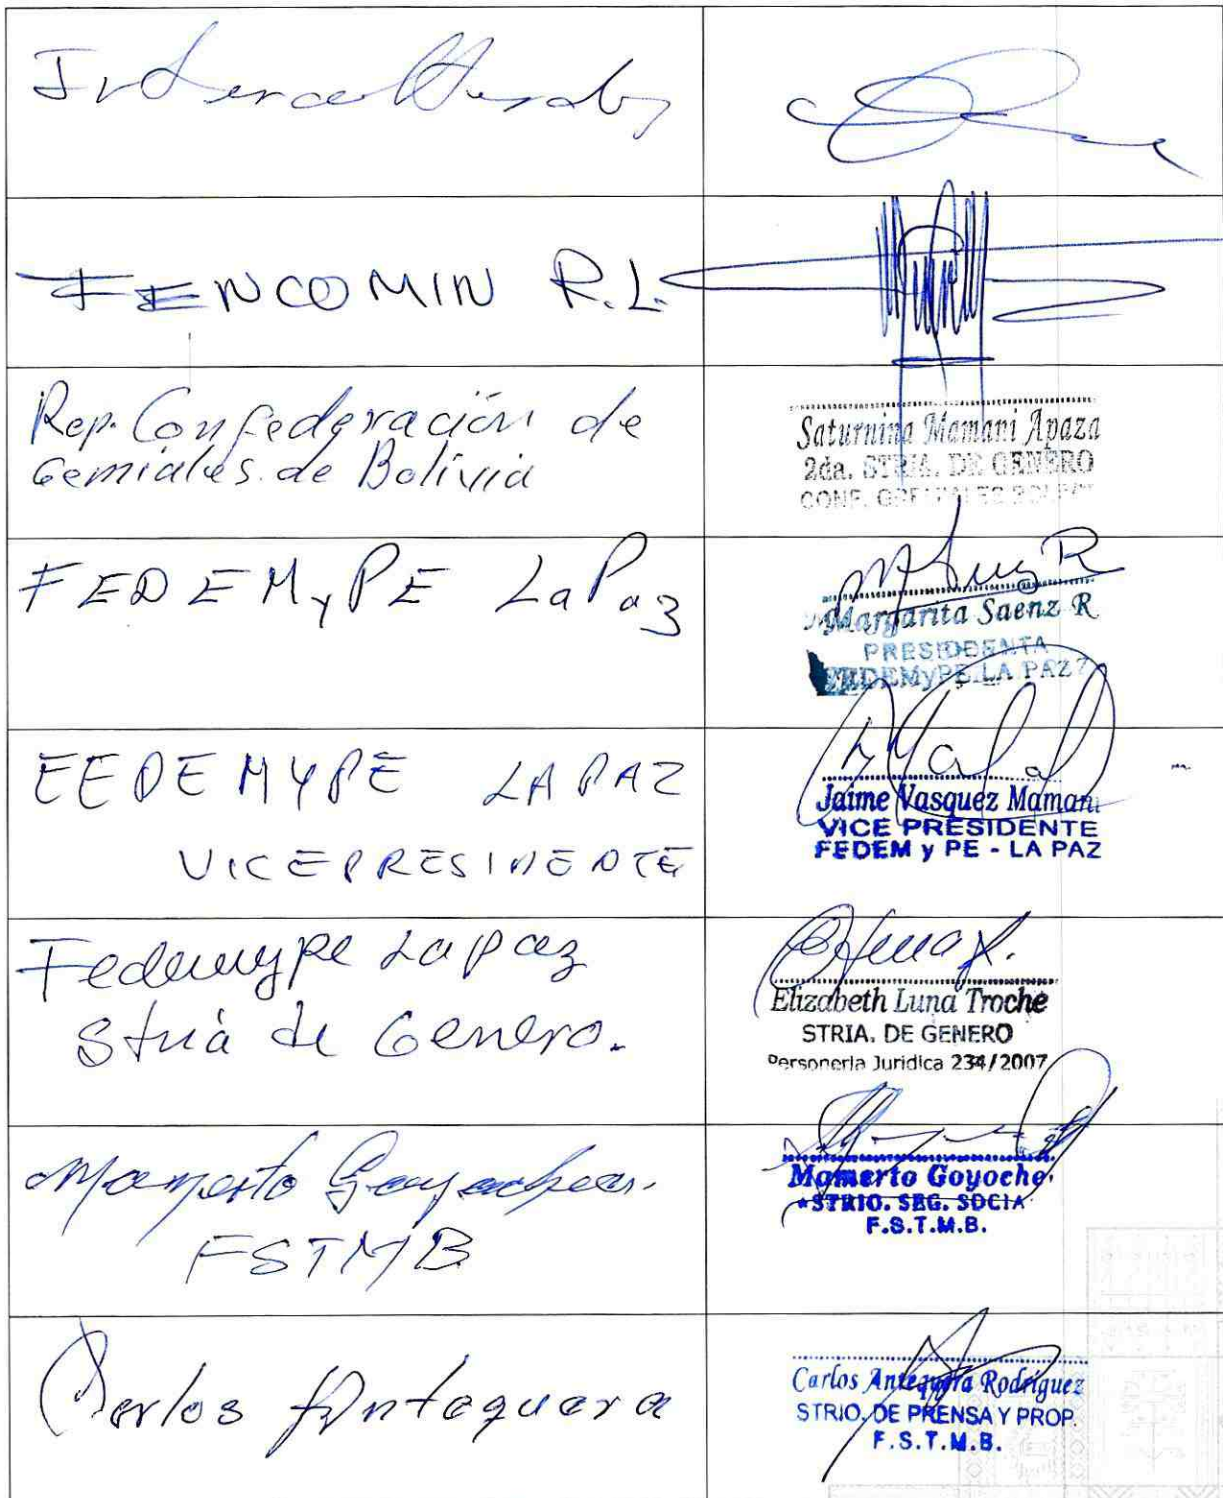 FENCOMIN R.L.
Rep. Confederación de
Gemiales de Bolivia
Saturnina Mamani Apaza
2da. STRIA. DE GENERO
FEDEMyPE La Paz
Margarita Saenz R
PRESIDENTA
FEDEMyPE LA PAZ
FEDEMYPE LA PAZ
VICEPRESIDENTE
Jaime Vasquez Mamani
VICE PRESIDENTE
FEDEM y PE - LA PAZ
Fedemype La paz
Stria de Genero.
Elizabeth Luna Troche
STRIA. DE GENERO
Personeria Juridica 234/2007
Mamerto
FSTMB
Mamerto Goyoche
STRIO. SEG. SOCIA
F.S.T.M.B.
Carlos Antequera
Carlos Antequera Rodriguez
STRIO. DE PRENSA Y PROP.
F.S.T.M.B.